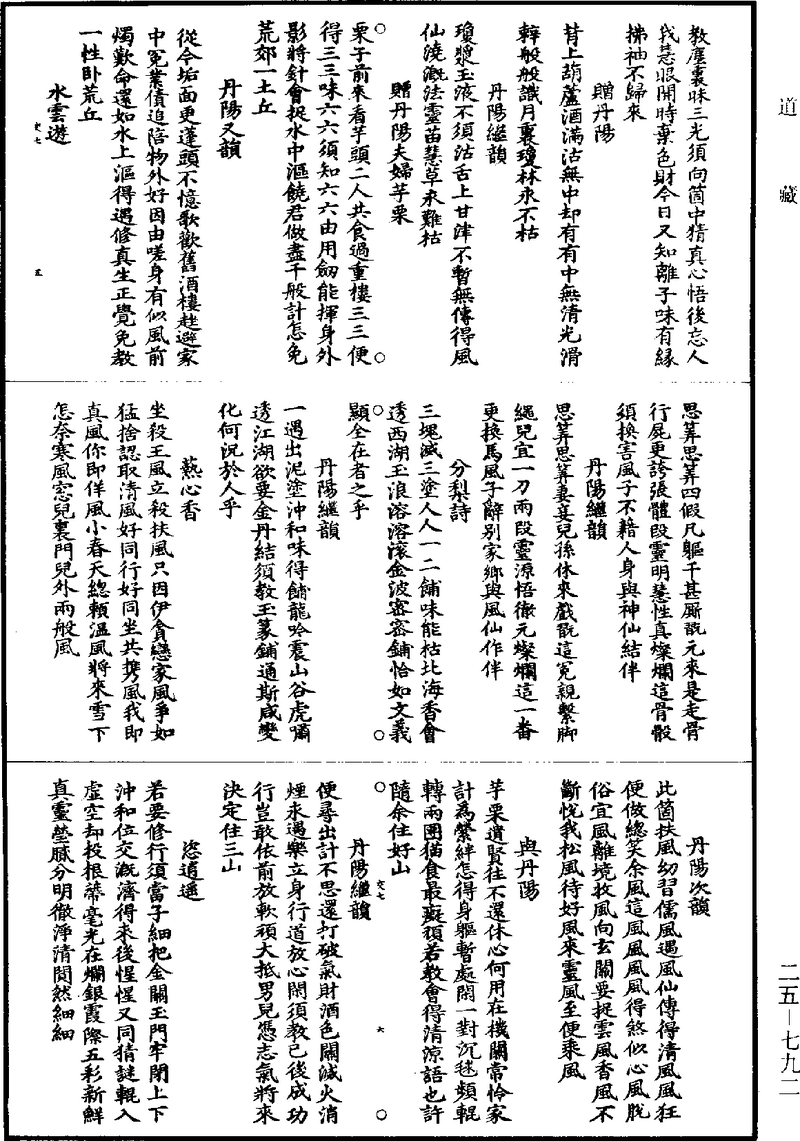 道藏
教塵裏昧三光須向箇中猜真心悟後忘人
我慧眼開時棄色財今日又知離子味有緣
拂袖不歸來
贈丹陽
背上葫蘆酒滿沽無中却有有中無清光滑
辣般般識月裏瓊林永不枯
丹陽繼韻
瓊漿玉液不須沽舌上甘津不暫無傳得風
仙澆溉法靈苗慧草永難枯
贈丹陽夫婦芋栗
栗子前來看芋頭二人共食過重樓三三便
得三三味六六須知六六由用劒能揮身外
影將針會捉水中漚饒君做盡千般計怎免
荒郊一土丘
丹陽又韻
從今垢面更蓬頭不憶歌歡舊酒樓趖避家
中冤業債追陪物外好因由嗟身有似風前
燭歎命還如水上漚得遇修真生正覺免教
一性卧荒丘
水雲遊
交七 五
思筭思筭四假凡軀千甚厮翫元來是走骨
行屍更誇張體段靈明慧性真燦爛這骨骰
須換害風子不藉人身與神仙結伴
丹陽繼韻
思筭思筭妻妾兒孫休來戲翫這冤親繫脚
繩兒宜一刀兩段靈源悟徹元燦爛這一番
更換馬風子辭別家鄉與風仙作伴
分梨詩
三塊滅三塗人人一二餔味能枯北海香會
透西湖玉浪溶溶滾金波密密鋪恰如文義
顯全在者之乎
丹陽繼韻
一遇出泥塗沖和味得餔龍吟震山谷虎嘯
透江湖欲要金丹結須教玉篆鋪通斯咸變
化何況於人乎
爇心香
坐殺王風立殺扶風只因伊貪戀家風爭如
猛捨認取清風好同行好同坐共携風我即
真風你即佯風小春天總賴溫風將來雪下
怎奈寒風窓兒裏門兒外兩般風
丹陽次韻
此箇扶風幼習儒風遇風仙傳得清風風狂
便做總笑余風這風風風風得煞似心風脫
俗宜風離境攷風向玄關要捉雲風香風不
斷恱我松風待好風來靈風至便乘風
與丹陽
芋栗遺賢往不還休心何用在機關常怜家
計為縈絆怎得身軀暫處閑一對沉毬頻輥
轉兩團猫食最癡頑若教會得清涼語也許
隨余住好山
交七 六
丹陽繼韻
便尋出計不思還打破氣財酒色關滅火消
煙永遇樂立身行道放心閑須教己後成功
行豈敢依前放軟頑大抵男兒憑志氣將來
決定住三山
恣逍遥
若要修行須當子細把金關玉門牢閉上下
沖和位交溉濟得來後惺惺又同猜謎輥入
虛空却投根蔕毫光在爛銀霞際五彩新鮮
真靈瑩膩分明徹淨清閴然細細
二五—七九二